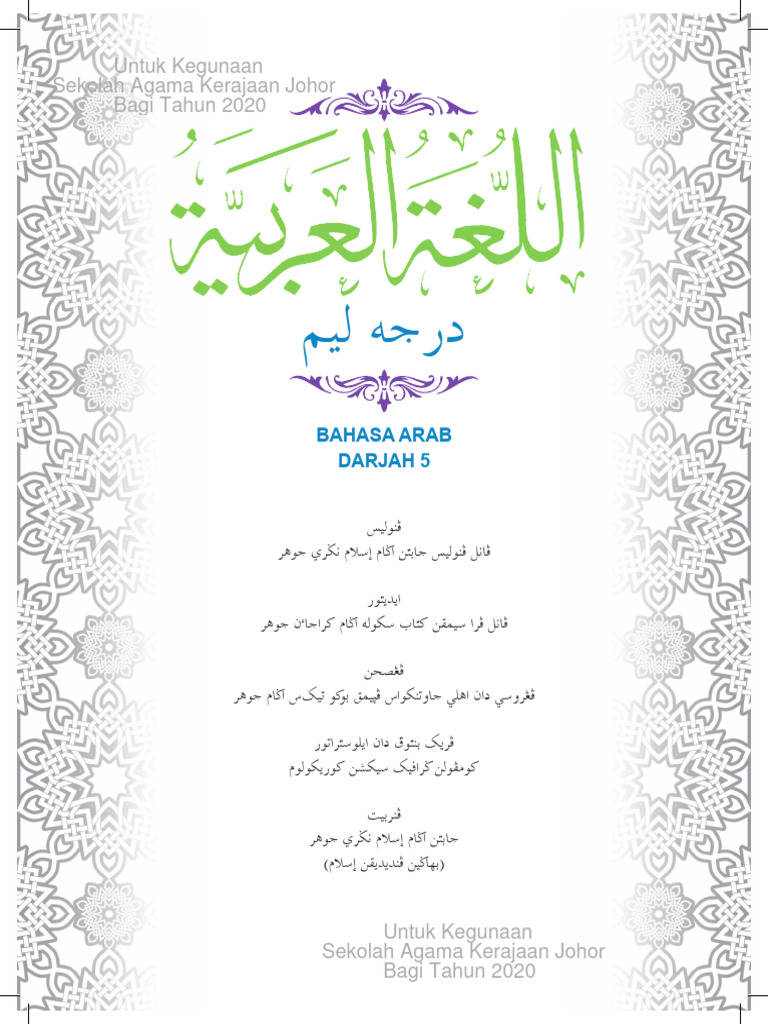 Untuk Kegunaan
Sekolah Agama Kerajaan Johor
Bagi Tahun 2020
اللُّغَةُ الْعَرَبِيَّةُ
درجه ليم
BAHASA ARAB
DARJAH 5
ڤنوليس
ڤانل ڤنوليس جابتن اݢام إسلام نݢري جوهر
ايديتور
ڤانل ڤرا سيمقن کتاب سکوله اݢام کراجاءن جوهر
ڤڠصحن
ڤڠروسي دان اهلي جاوتنکواس ڤپيمق بوکو تيک س اݢام جوهر
ڤريک بنتوق دان ايلوستراتور
کومڤولن ݢرافيک سيکشن کوريکولوم
ڤنربيت
جابتن اݢام إسلام نݢري جوهر
(بهاݢين ڤنديديقن إسلام)
Untuk Kegunaan
Sekolah Agama Kerajaan Johor
Bagi Tahun 2020